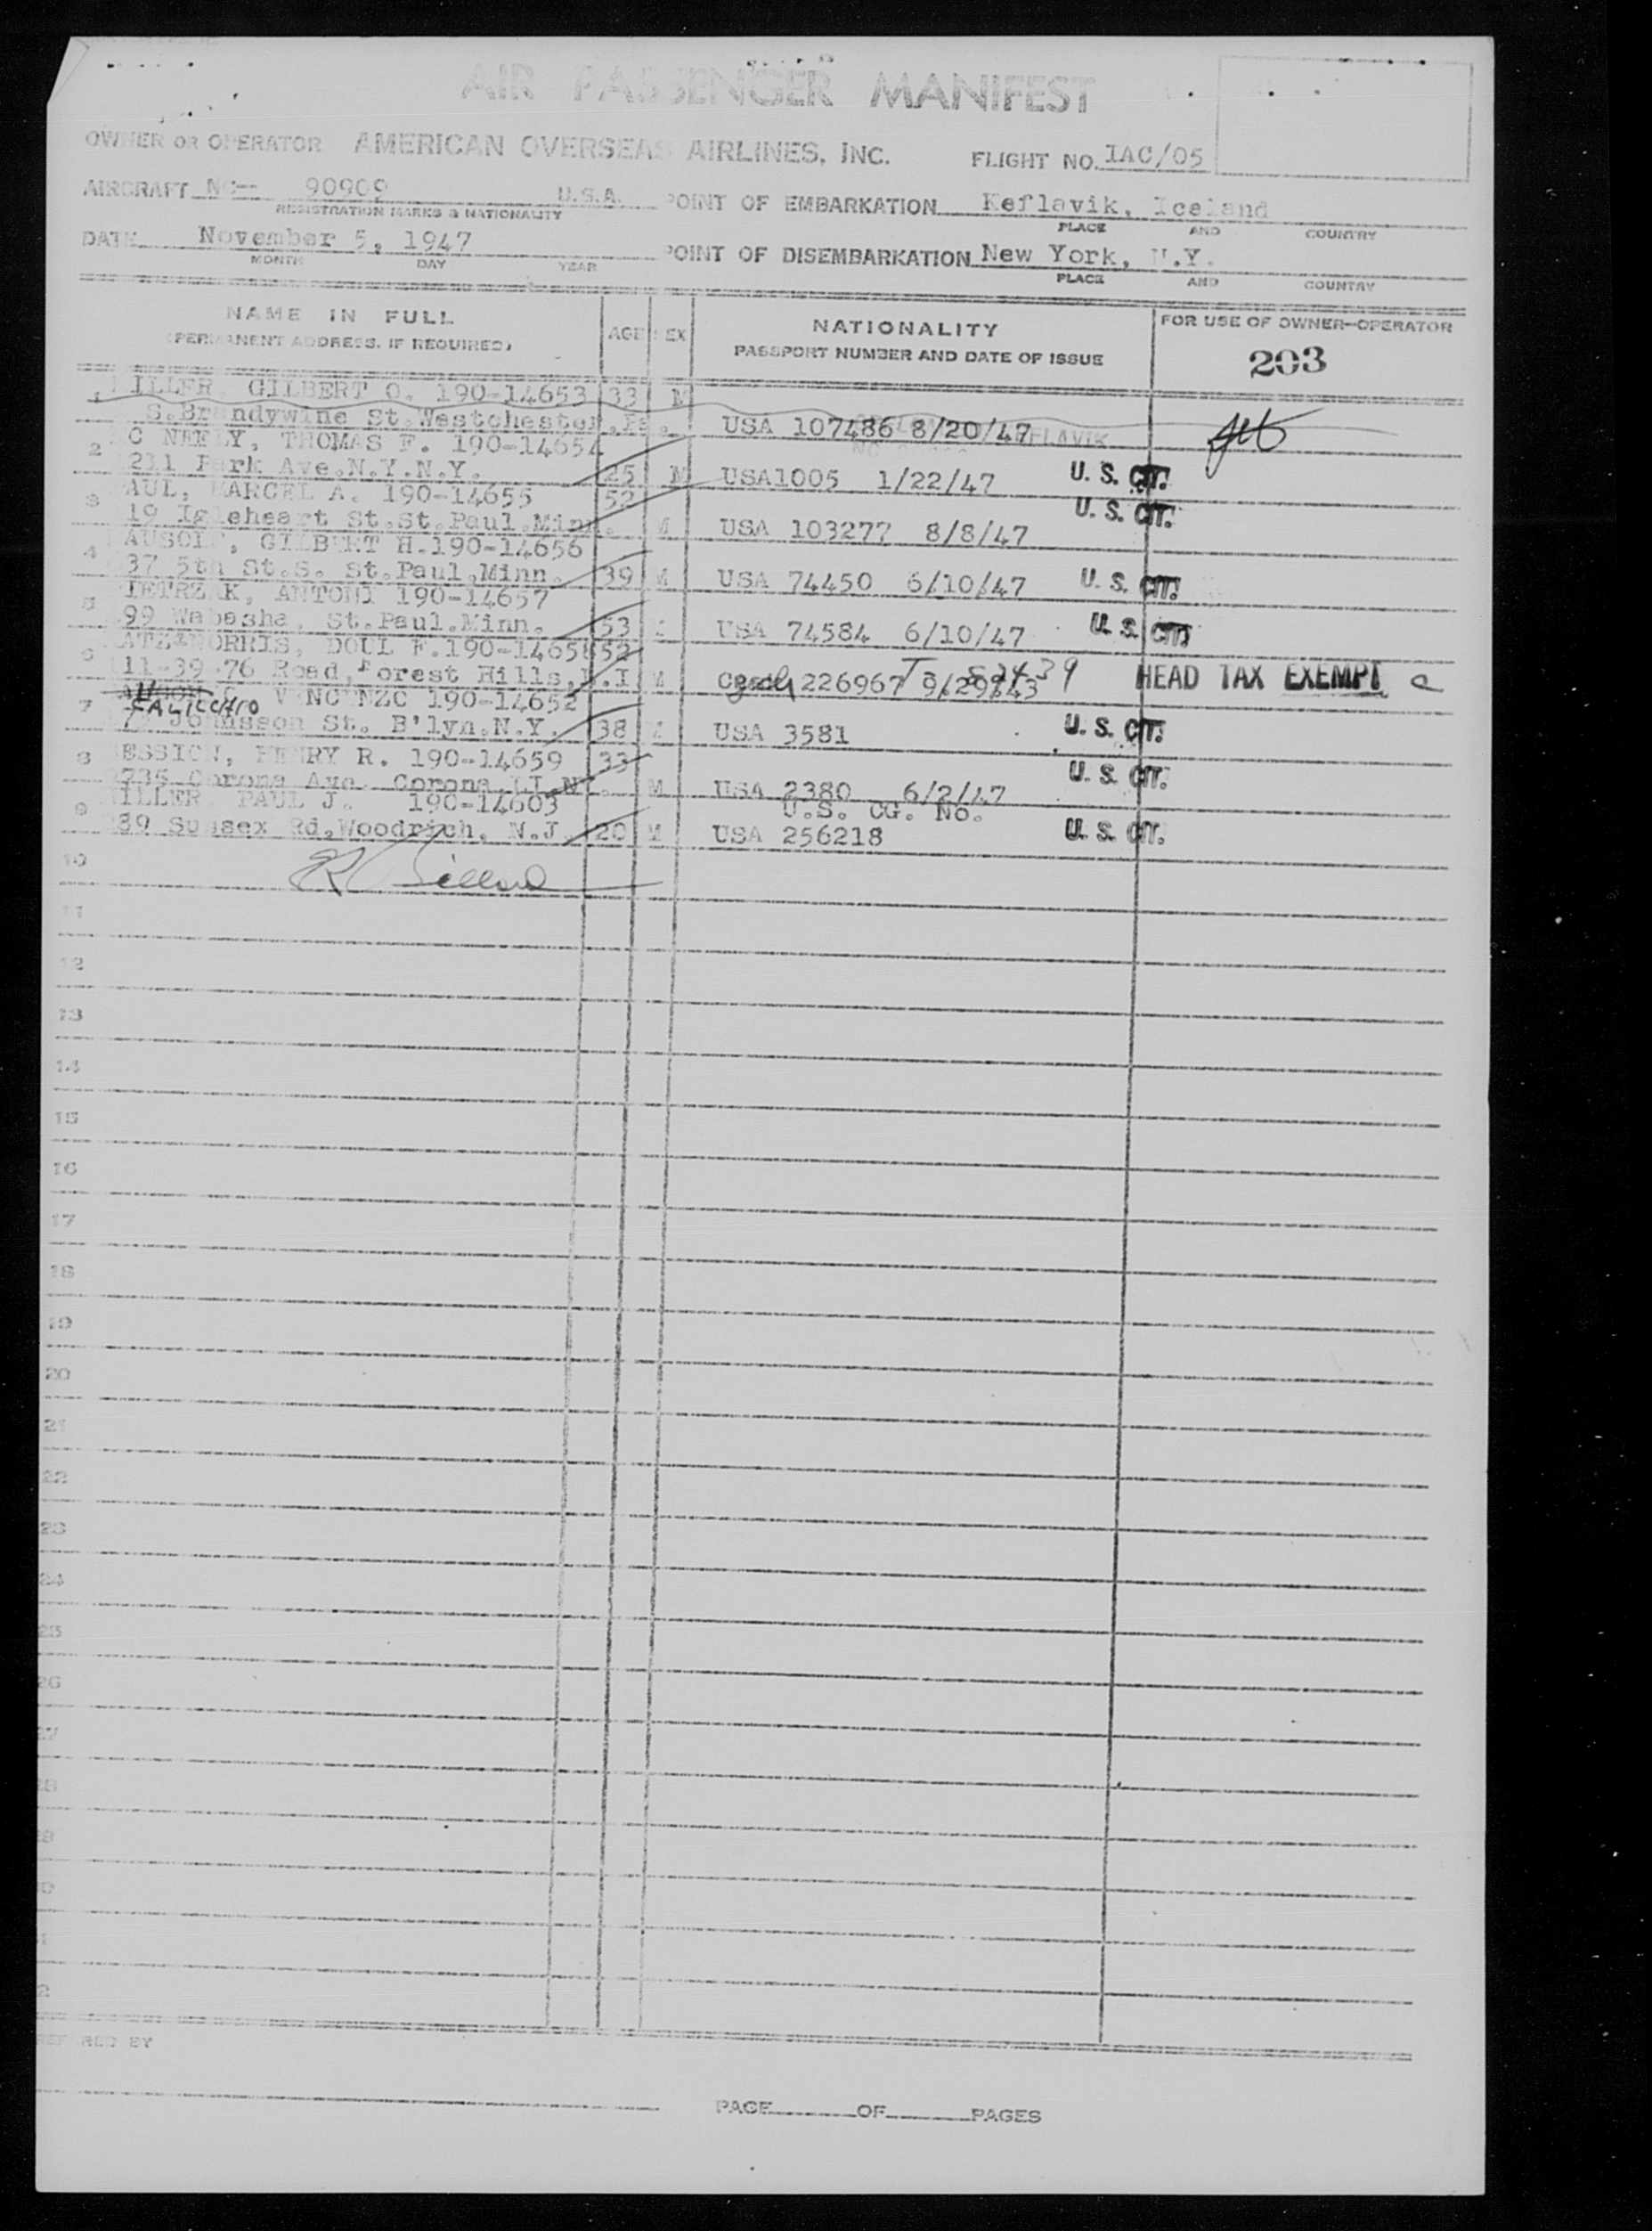 AIR PASSENGER MANIFEST
OWNER OR OPERATOR AMERICAN OVERSEAS AIRLINES, INC. FLIGHT NO. IAC/05
AIRCRAFT NC-- 90909 U.S.A. POINT OF EMBARKATION Keflavik, Iceland
REGISTRATION MARKS & NATIONALITY PLACE AND COUNTRY
DATE November 5, 1947 POINT OF DISEMBARKATION New York, N.Y.
MONTH DAY YEAR PLACE AND COUNTRY
NAME IN FULL AGE SEX NATIONALITY FOR USE OF OWNER-OPERATOR
(PERMANENT ADDRESS, IF REQUIRED) PASSPORT NUMBER AND DATE OF ISSUE 203
1 ILLER GILBERT O. 190-14653 33 M
S.Brandywine St.Westchester.Pa. USA 107486 8/20/47
2 C NEELY, THOMAS F. 190-14654
211 Park Ave.N.Y.N.Y. 25 M USA1005 1/22/47 U. S. CIT.
3 AUL, MARCEL A. 190-14655 52 U. S. CIT.
19 Igleheart St.St.Paul.Minn. M USA 103277 8/8/47
4 AUSON, GILBERT H.190-14656
37 5th St.S. St.Paul,Minn. 39 M USA 74450 6/10/47 U. S. CIT.
5 IETRZAK, ANTONI 190-14657
99 Wabasha, St.Paul.Minn. 53 M USA 74584 6/10/47 U. S. CIT.
6 ATZ-MORRIS, DOUL F.190-14658 52
11-39-76 Road, Forest Hills,L.I M Czech 226967 9/29/43 HEAD TAX EXEMPT
7 CALICCHIO VINCENZO 190-14652
Johnsson St. B'lyn.N.Y. 38 M USA 3581 U. S. CIT.
8 ESSION, HENRY R. 190-14659 33 U. S. CIT.
735 Corona Ave. Corona.LI.N. M USA 2380 6/2/47
9 ILLER PAUL J. 190-14603 U.S. CG. No.
89 Sussex Rd,Woodrich, N.J. 20 M USA 256218 U. S. CIT.
10
11
12
13
14
15
16
17
18
19
20
21
22
23
24
25
26
PAGE OF PAGES